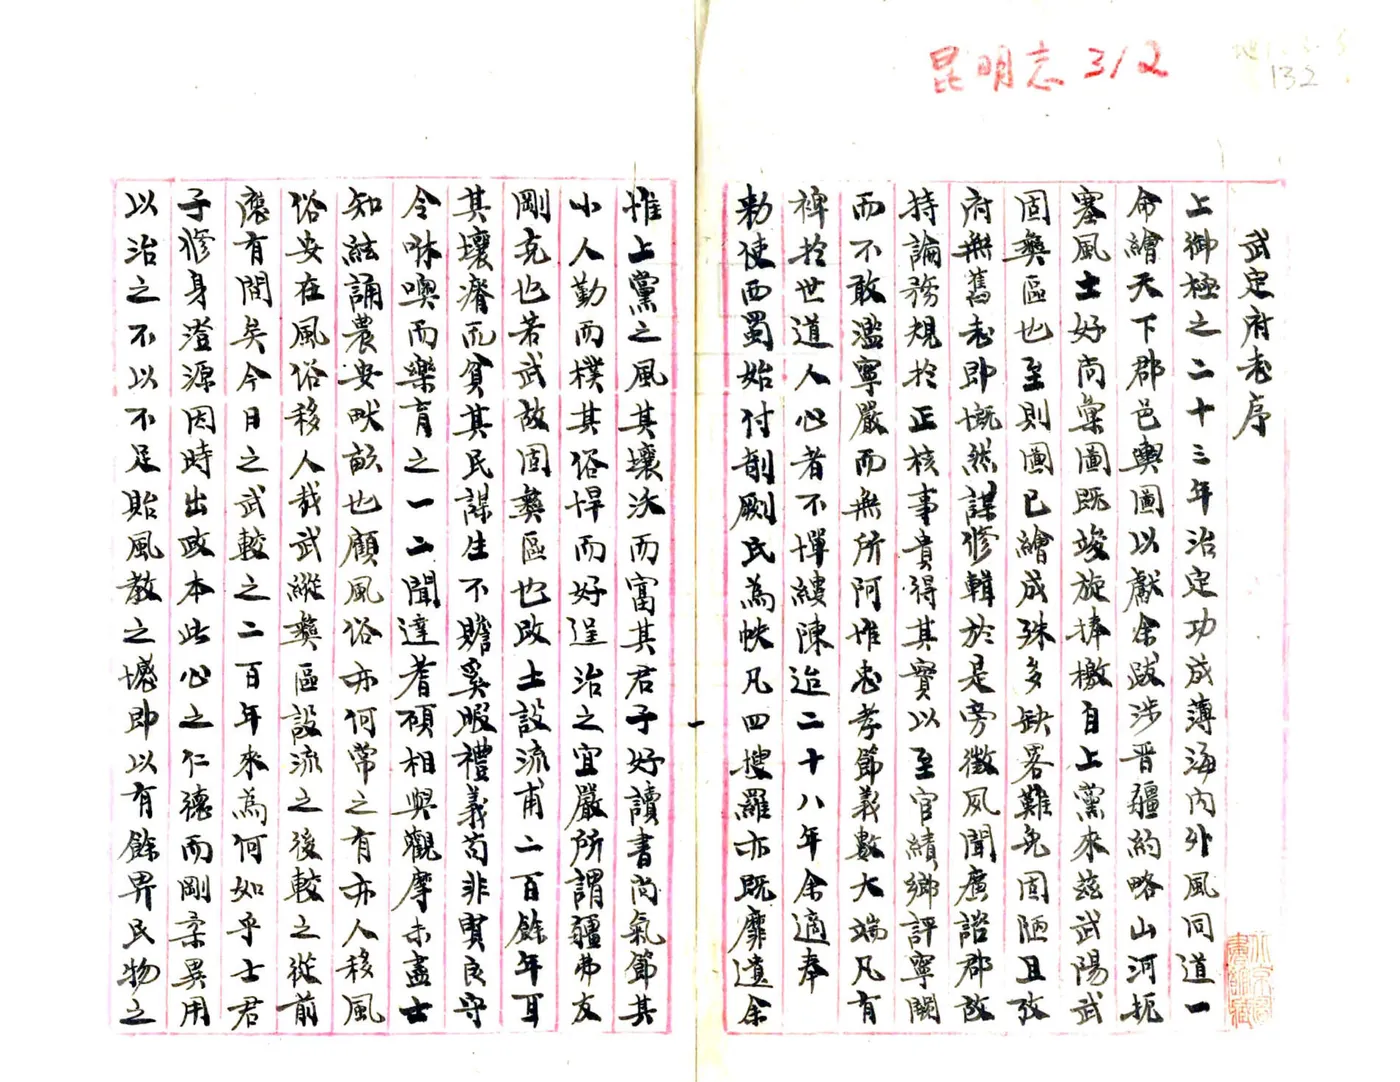 昆明志 312
132
武定府志序
上御極之二十三年治定功成薄海内外風同道一
命繪天下郡邑輿圖以獻余跋涉晋疆約略山河扼
塞風土好尚彙圖既竣旋捧檄自上黨來茲武陽武
固彝區也至則圖已繪成殊多缺畧難免固陋且攷
府無舊志即慨然謀修輯於是旁徵夙聞廣諮郡故
持論務規扵正核事貴得其實以至官績鄉評寧闕
而不敢濫寧嚴而無所阿惟忠孝節義數大端凡有
裨扵世道人心者不憚縷陳迨二十八年余適奉
勅使西蜀始付剞劂氏為帙凡四搜羅亦既靡遺余
惟上黨之風其壤沃而富其君子好讀書尚氣節其
小人勤而樸其俗悍而好逞治之宜嚴所謂疆弗友
剛克也若武故固彝區也改土設流甫二百餘年耳
其壤瘠而貧其民謀生不贍奚暇禮義苟非賢良守
令咻噢而樂育之一二聞達耆碩相與觀摩未盡士
知絃誦農安畎畝也顧風俗亦何常之有亦人移風
俗安在風俗移人哉武縱彝區設流之後較之從前
應有間矣今日之武較之二百年來為何如乎士君
子修身澄源因時出政本此心之仁德而剛柔異用
以治之不以不足貽風教之憾即以有餘畀民物之